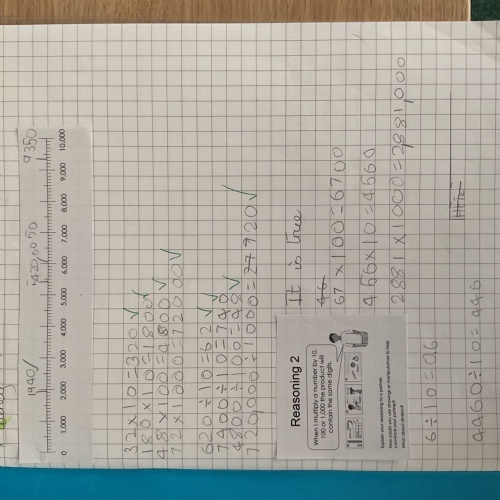 1940/
5420,6050
9350
0 1,000 2,000 3,000 4,000 5,000 6,000 7,000 8,000 9,000 10,000
32x10=320✓
180x10=1800✓
48x100=4800✓
72x1000=72000✓
620÷10=62✓
7400÷10=740✓
4800÷100=48✓
7720,000÷1000=27920✓
Reasoning 2
When I multiply a number by 10, 100 or 1,000 the product will contain the same digits.
Explain your reasoning to a partner.
How could you use drawings or manipulatives to help convince your partner?
What about division?
It is true
46
67x100=6700
456x10=4560
2881x1000=2,881,000
6÷10=0.6
4460÷10=446